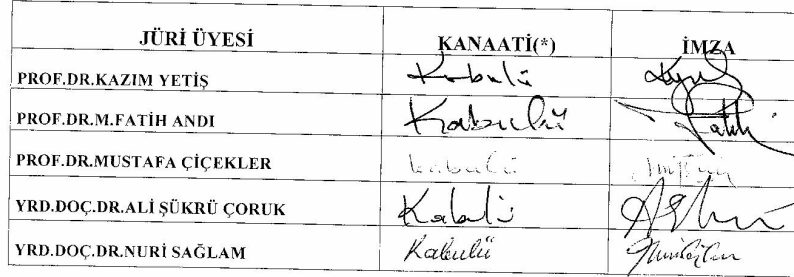 JÜRİ ÜYESİ KANAATİ(*) İMZA
PROF.DR.KAZIM YETİŞ Kabulü
PROF.DR.M.FATİH ANDI Kabulü Fatih
PROF.DR.MUSTAFA ÇİÇEKLER kabulü
YRD.DOÇ.DR.ALİ ŞÜKRÜ ÇORUK Kabulü
YRD.DOÇ.DR.NURİ SAĞLAM Kabulü